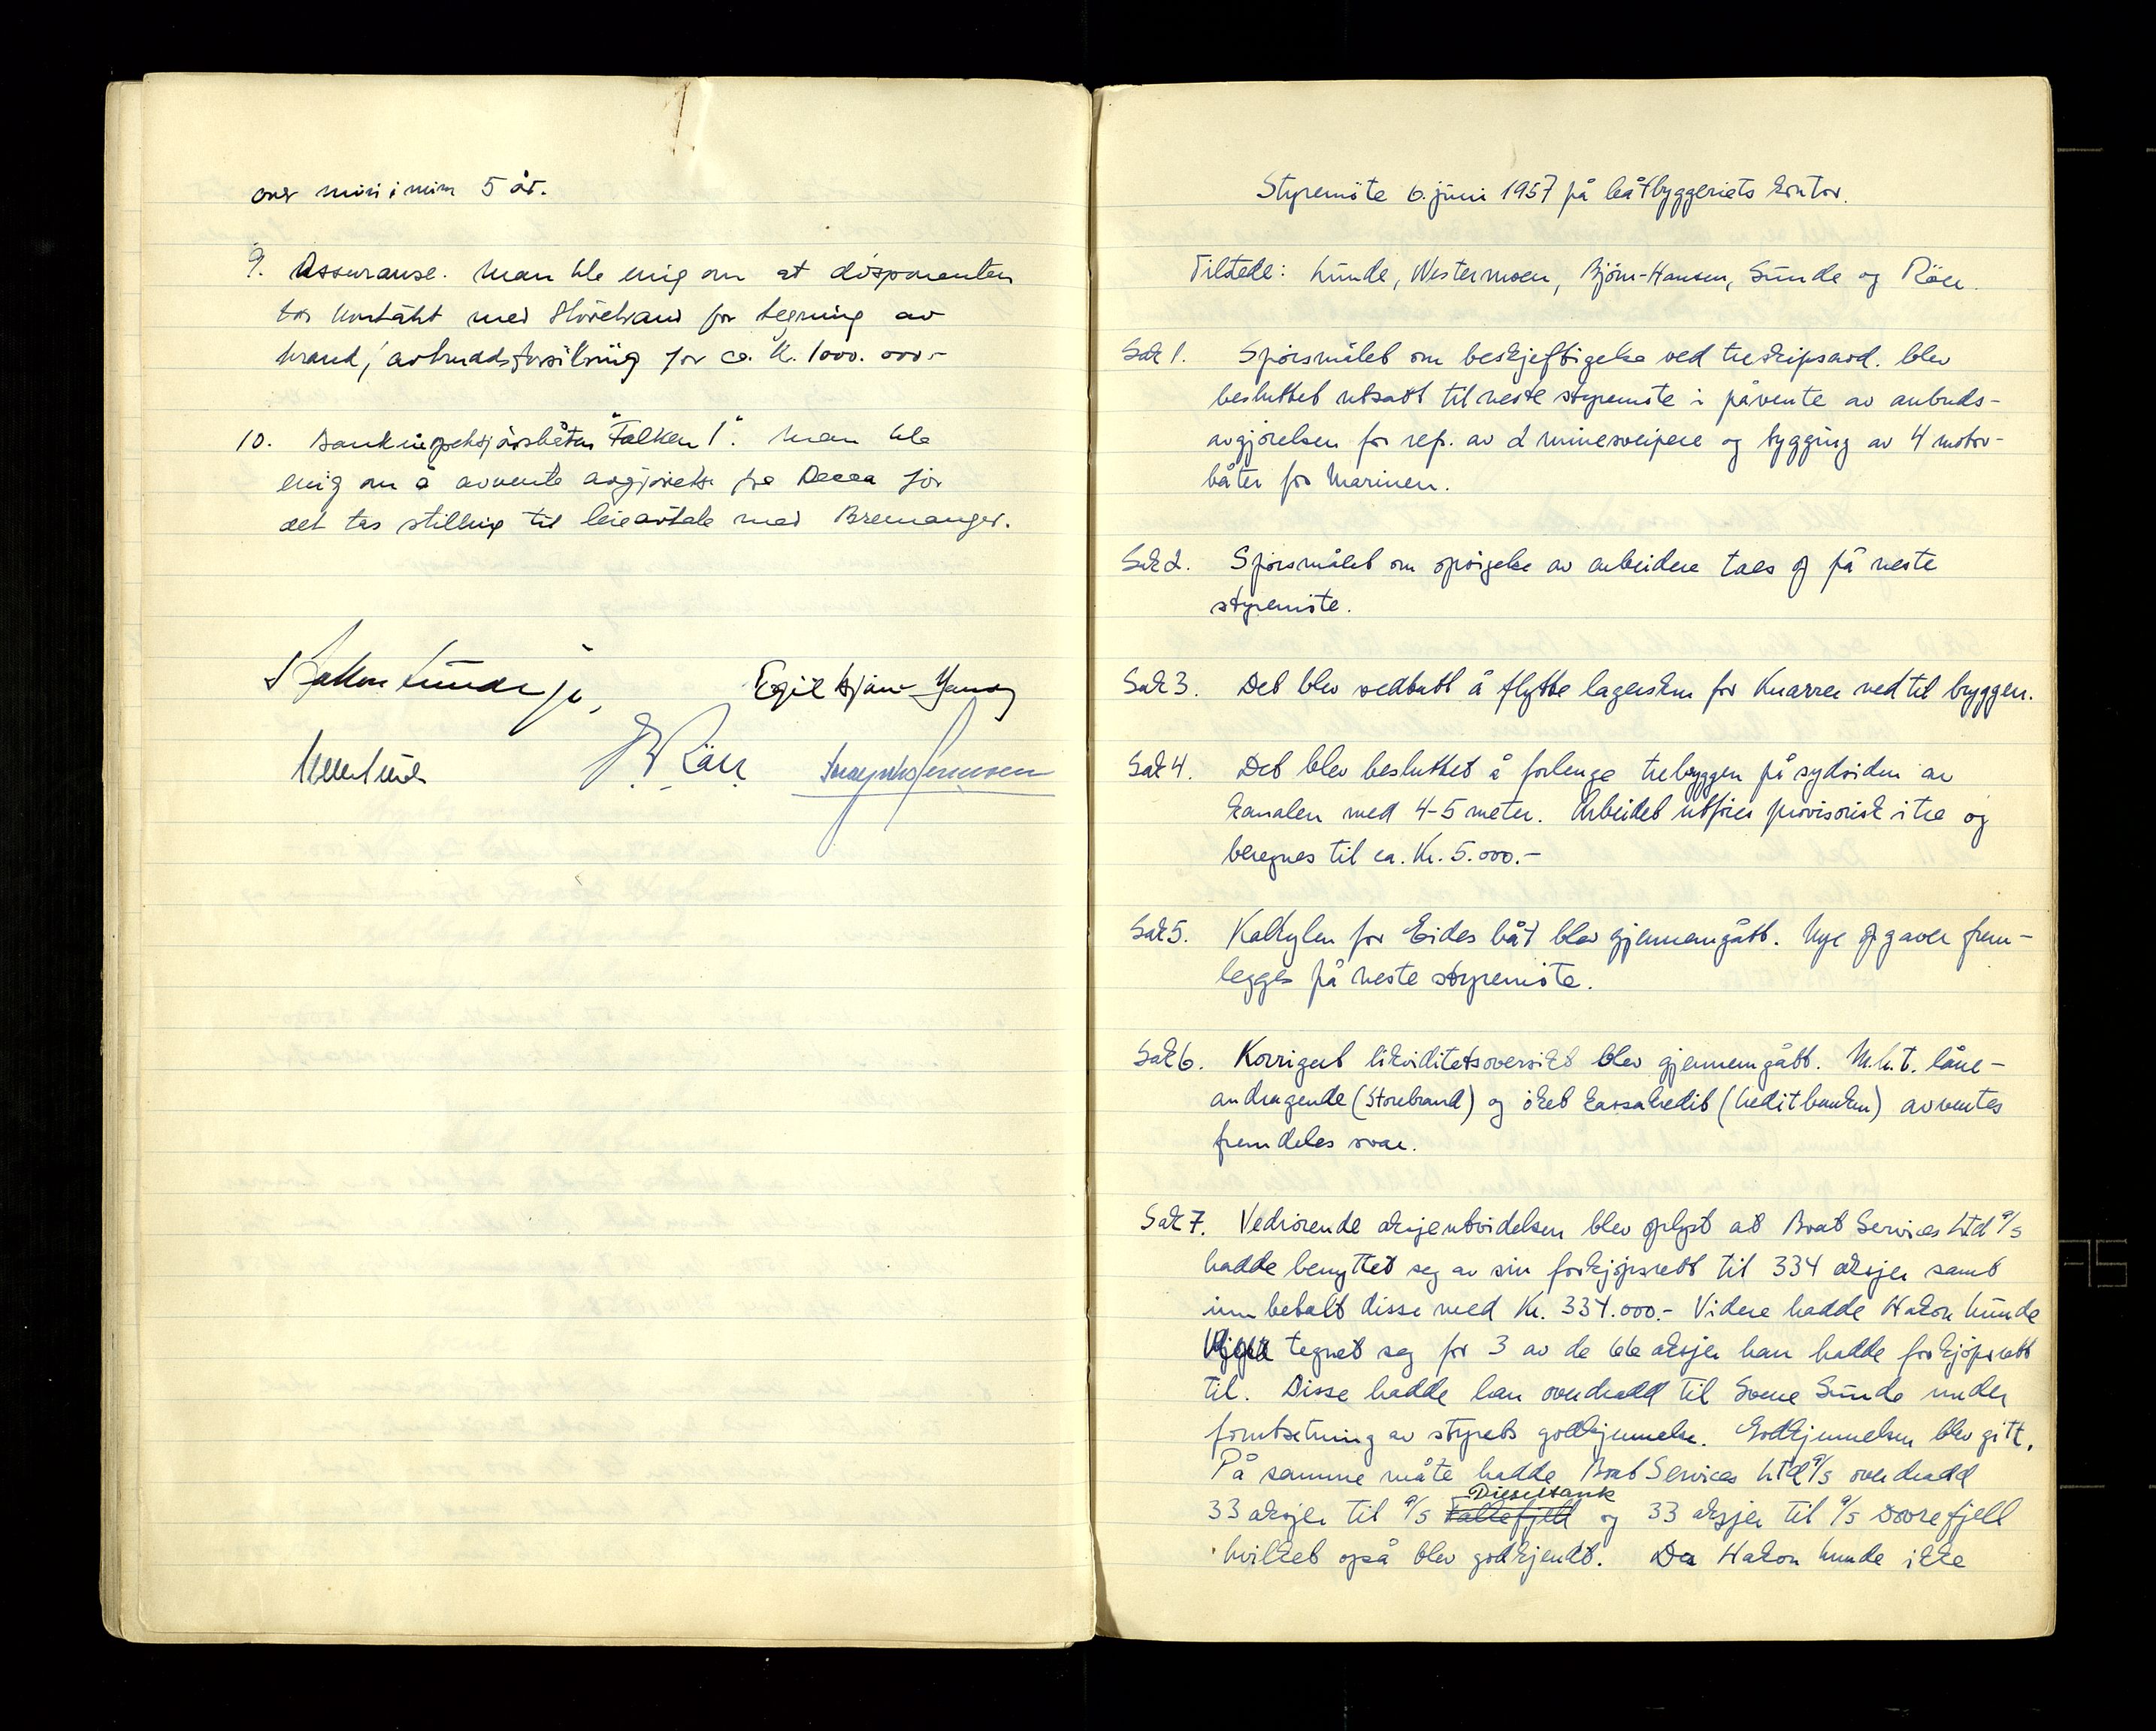 over minimum 5 år.
9. Assuranse. Man ble enig om at disponenten
tar kontakt med Storebrand for tegning av
brand/avbruddsforsikring for ca. Kr. 1000.000.-
10. Bankinspeksjonsbåten "Falken I". Man ble
enig om å avvente avgjørelse fra Decca før
det tas stilling til leieavtale med Bremanger.
Hakon Lunde jr.
Egil Bjørn-Hansen
Röer
Styremöte 6. juni 1957 på båtbyggeriets kontor.
Tilstede: Lunde, Westermoen, Björn-Hansen, Sunde og Röer.
Sak 1. Spörsmålet om beskjeftigelse ved treskipsavd. blev
besluttet utsatt til neste styremöte i påvente av anbuds-
avgjörelsen for rep. av 2 minesveipere og bygging av 4 motor-
båter for Marinen.
Sak 2. Spörsmålet om opsigelse av arbeidere taes op på neste
styremöte.
Sak 3. Det blev vedtatt å flytte lagerskur for Knarrer ned til bryggen.
Sak 4. Det blev besluttet å forlenge trebryggen på sydsiden av
kanalen med 4-5 meter. Arbeidet utföres provisorisk i tre og
beregnes til ca. Kr. 5.000.-
Sak 5. Kalkylen for Eides båt blev gjennemgått. Nye opgaver frem-
legges på neste styremöte.
Sak 6. Korrigert likviditetsoversikt blev gjennemgått. M.h.t. låne-
andragende (Storebrand) og öket kassakredit (Creditbanken) avventes
fremdeles svar.
Sak 7. Vedrörende aksjeutvidelsen blev oplyst at Boat Services Ltd A/S
hadde benyttet seg av sin forkjöpsrett til 334 aksjer samt
innbetalt disse med Kr. 334.000.- Videre hadde Hakon Lunde
tegnet seg for 3 av de 66 aksjer han hadde forkjöpsrett
til. Disse hadde han overdradd til Svene Sunde under
forutsetning av styrets godkjennelse. Godkjennelsen blev gitt.
På samme måte hadde Boat Services Ltd A/S overdradd
Dieseltank
33 aksjer til A/S Falkefjell og 33 aksjer til A/S Dovrefjell
hvilket også blev godkjendt. Da Hakon Lunde ikke